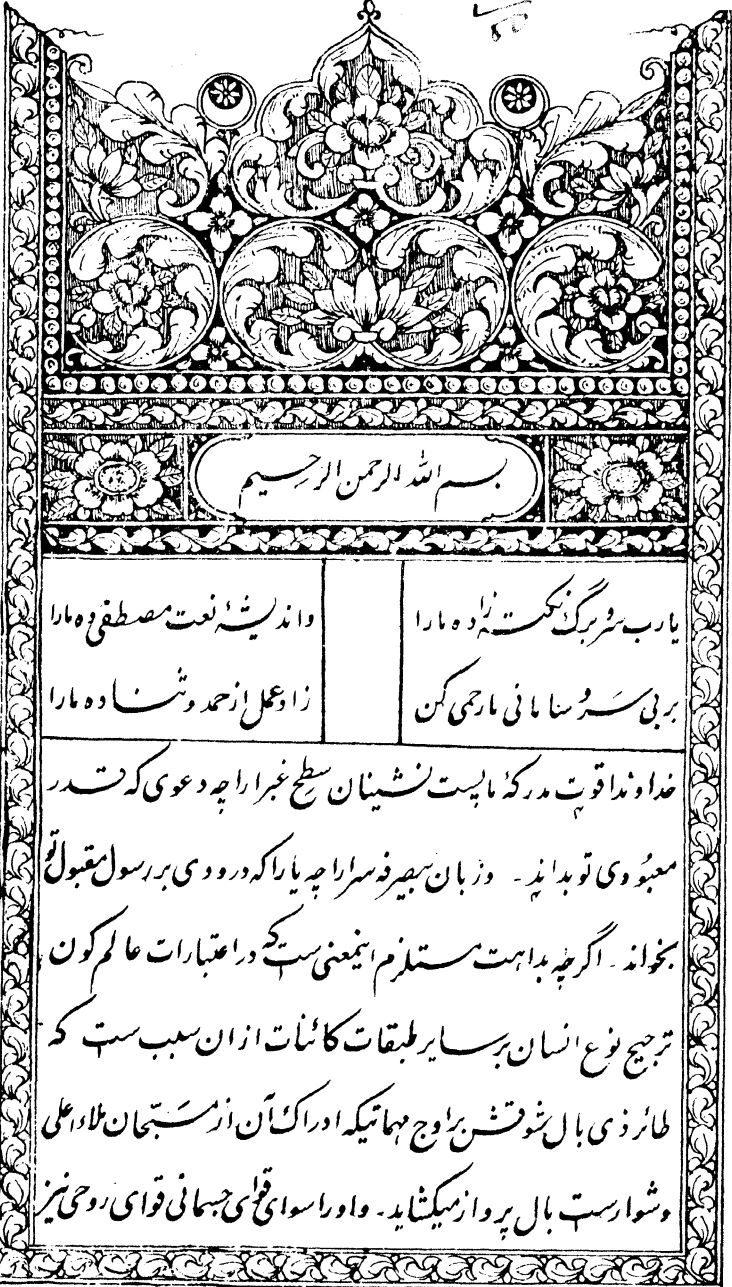 بسم الله الرحمن الرحیم
یارب سر و برگ نکتہ زا دہ مارا واندیشۂ نعت مصطفی دہ مارا
بر بی سر و سامانی ما رحمی کن زاد عمل از حمد و ثنا دہ مارا
خداوندا قوت مدرکۂ ما پست نشینان سطح غبرا را چہ دعوی کہ قدر
معبودی تو بداند۔ و زبان بیصرفہ سرا را چہ یارا کہ درودی بر رسول مقبول تو
بخواند۔ اگرچہ بداہت مستلزم اینمعنی ست کہ در اعتبارات عالم کون
ترجیح نوع انسان بر سایر طبقات کائنات ازان سبب ست کہ
طائر ذی بال شوقش بر اوج مہماتیکہ ادراک آن از مسبّحان ملاء اعلی
دشوارست بال پرواز میکشاید۔ و او را سوای قوای جسمانی قوای روحی نیز